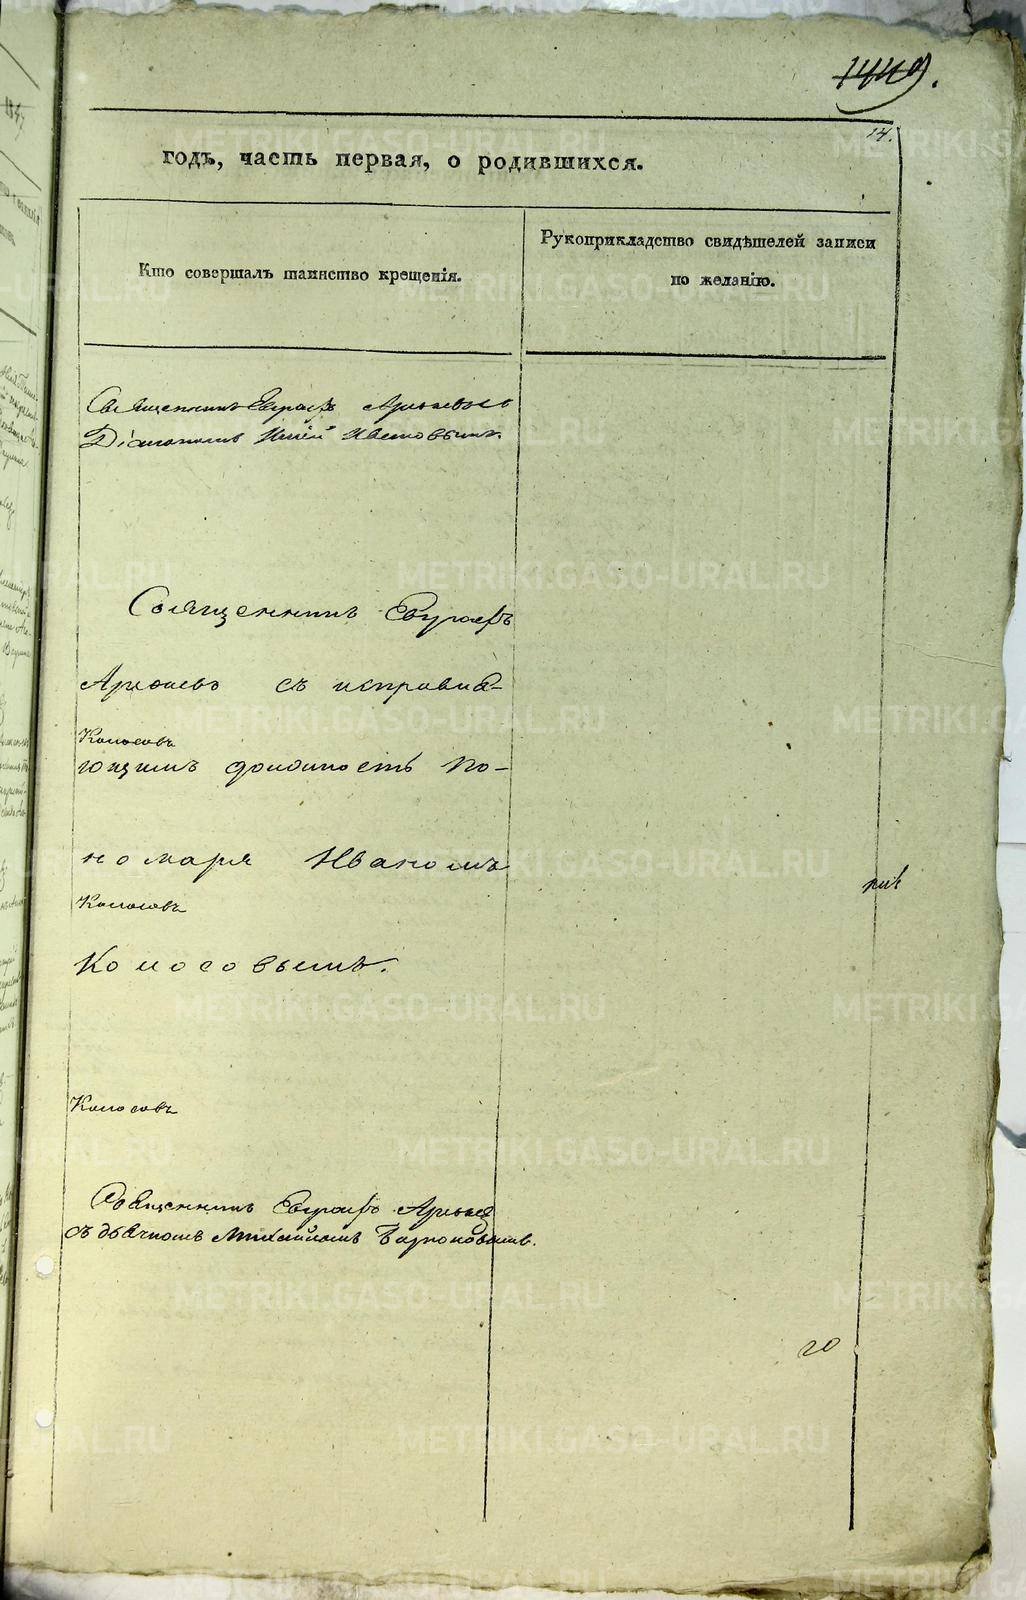 1449.
14.
годъ, часть первая, о родившихся.
Кто совершалъ таинство крещенія.
Рукоприкладство свидѣтелей записи
по желанію.
Священникъ Евграфъ
Діакономъ
Священникъ Евграфъ
съ исправля-
Колосовъ
ющимъ должность по-
номаря Иваномъ
Колосовъ
Колосовымъ.
Колосовъ
Священникъ Евграфъ
съ дьячкомъ Михаиломъ
METRIKI.GASO-URAL.RU